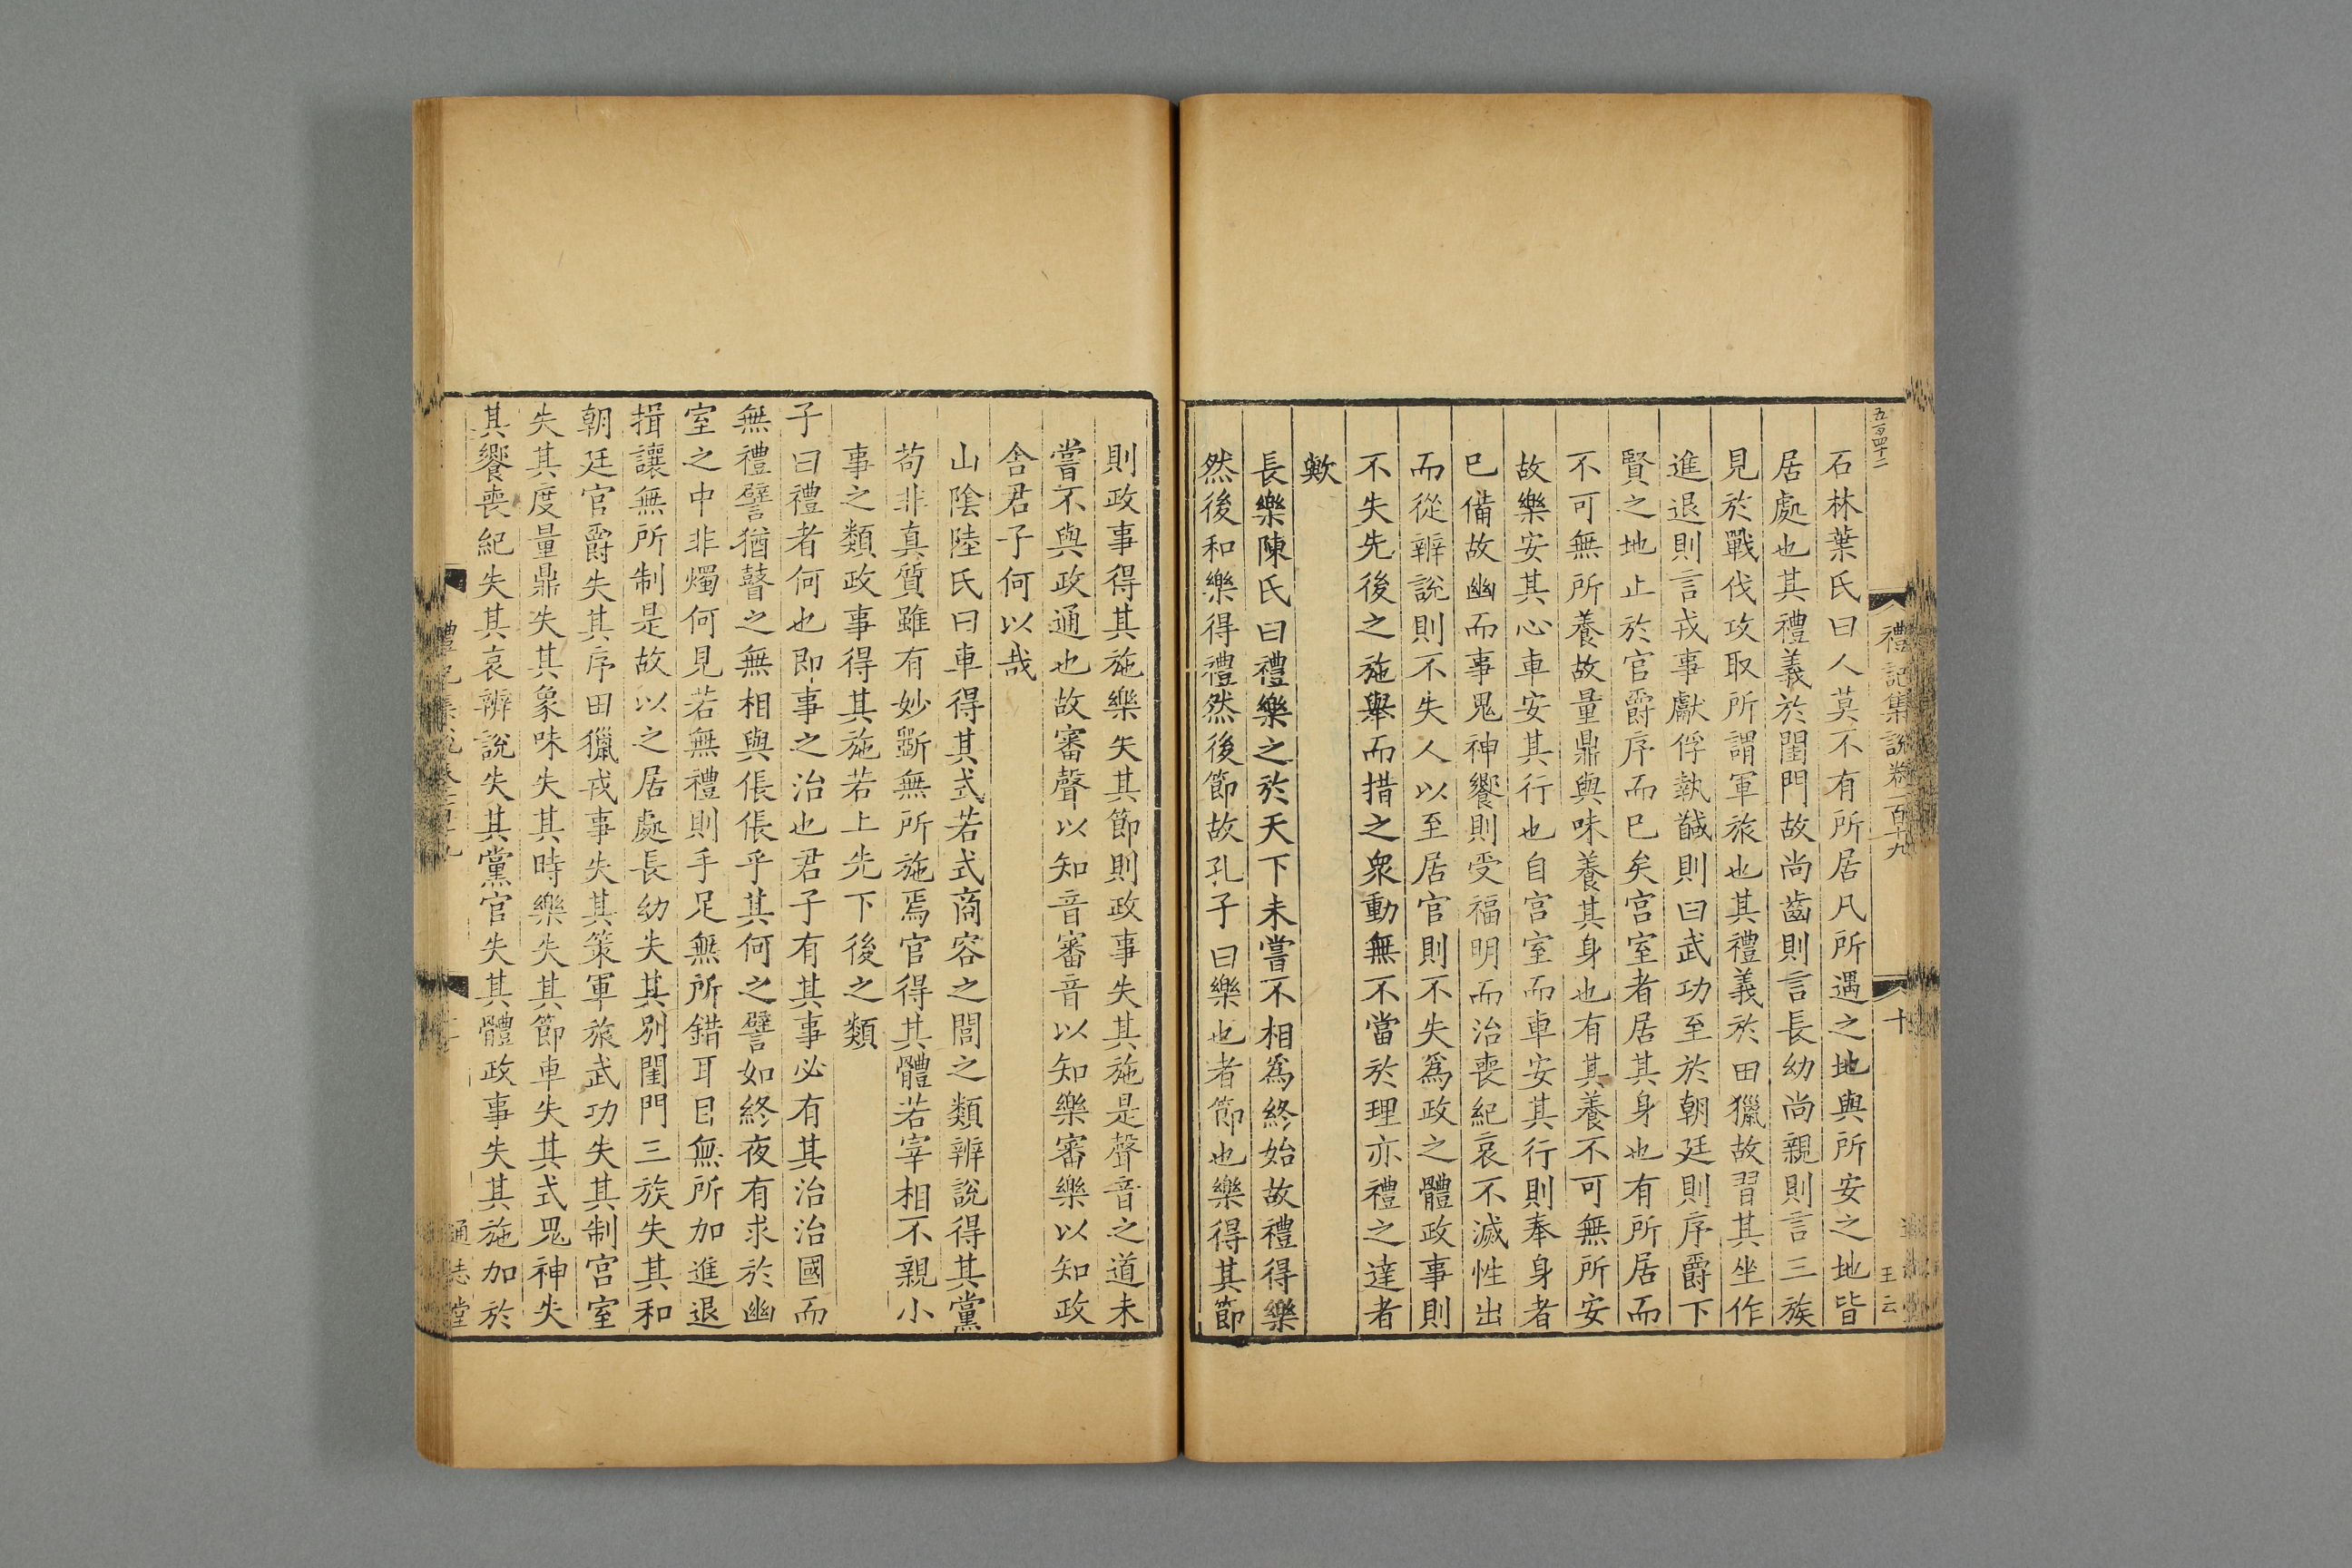 五百四十二
禮記集說卷一百十九
十
王云
石林葉氏曰人莫不有所居凡所遇之地與所安之地皆
居處也其禮義於閨門故尚齒則言長幼尚親則言三族
見於戰伐攻取所謂軍旅也其禮義於田獵故習其坐作
進退則言戎事獻俘執馘則曰武功至於朝廷則序爵下
賢之地止於官爵序而已矣宮室者居其身也有所居而
不可無所養故量鼎與味養其身也有其養不可無所安
故樂安其心車安其行也自宮室而車安其行則奉身者
已備故幽而事鬼神饗則受福明而治喪紀哀不滅性出
而從辨說則不失人以至居官則不失為政之體政事則
不失先後之施舉而措之眾動無不當於理亦禮之達者
歟
長樂陳氏曰禮樂之於天下未嘗不相為終始故禮得樂
然後和樂得禮然後節故孔子曰樂也者節也樂得其節
則政事得其施樂失其節則政事失其施是聲音之道未
嘗不與政通也故審聲以知音審音以知樂審樂以知政
舍君子何以哉
山陰陸氏曰車得其式若式商容之閭之類辨說得其黨
苟非真質雖有妙斲無所施焉官得其體若宰相不親小
事之類政事得其施若上先下後之類
子曰禮者何也即事之治也君子有其事必有其治治國而
無禮譬猶瞽之無相與倀倀乎其何之譬如終夜有求於幽
室之中非燭何見若無禮則手足無所錯耳目無所加進退
揖讓無所制是故以之居處長幼失其別閨門三族失其和
朝廷官爵失其序田獵戎事失其策軍旅武功失其制宮室
失其度量鼎失其象味失其時樂失其節車失其式鬼神失
其饗喪紀失其哀辨說失其黨官失其體政事失其施加於
通志堂